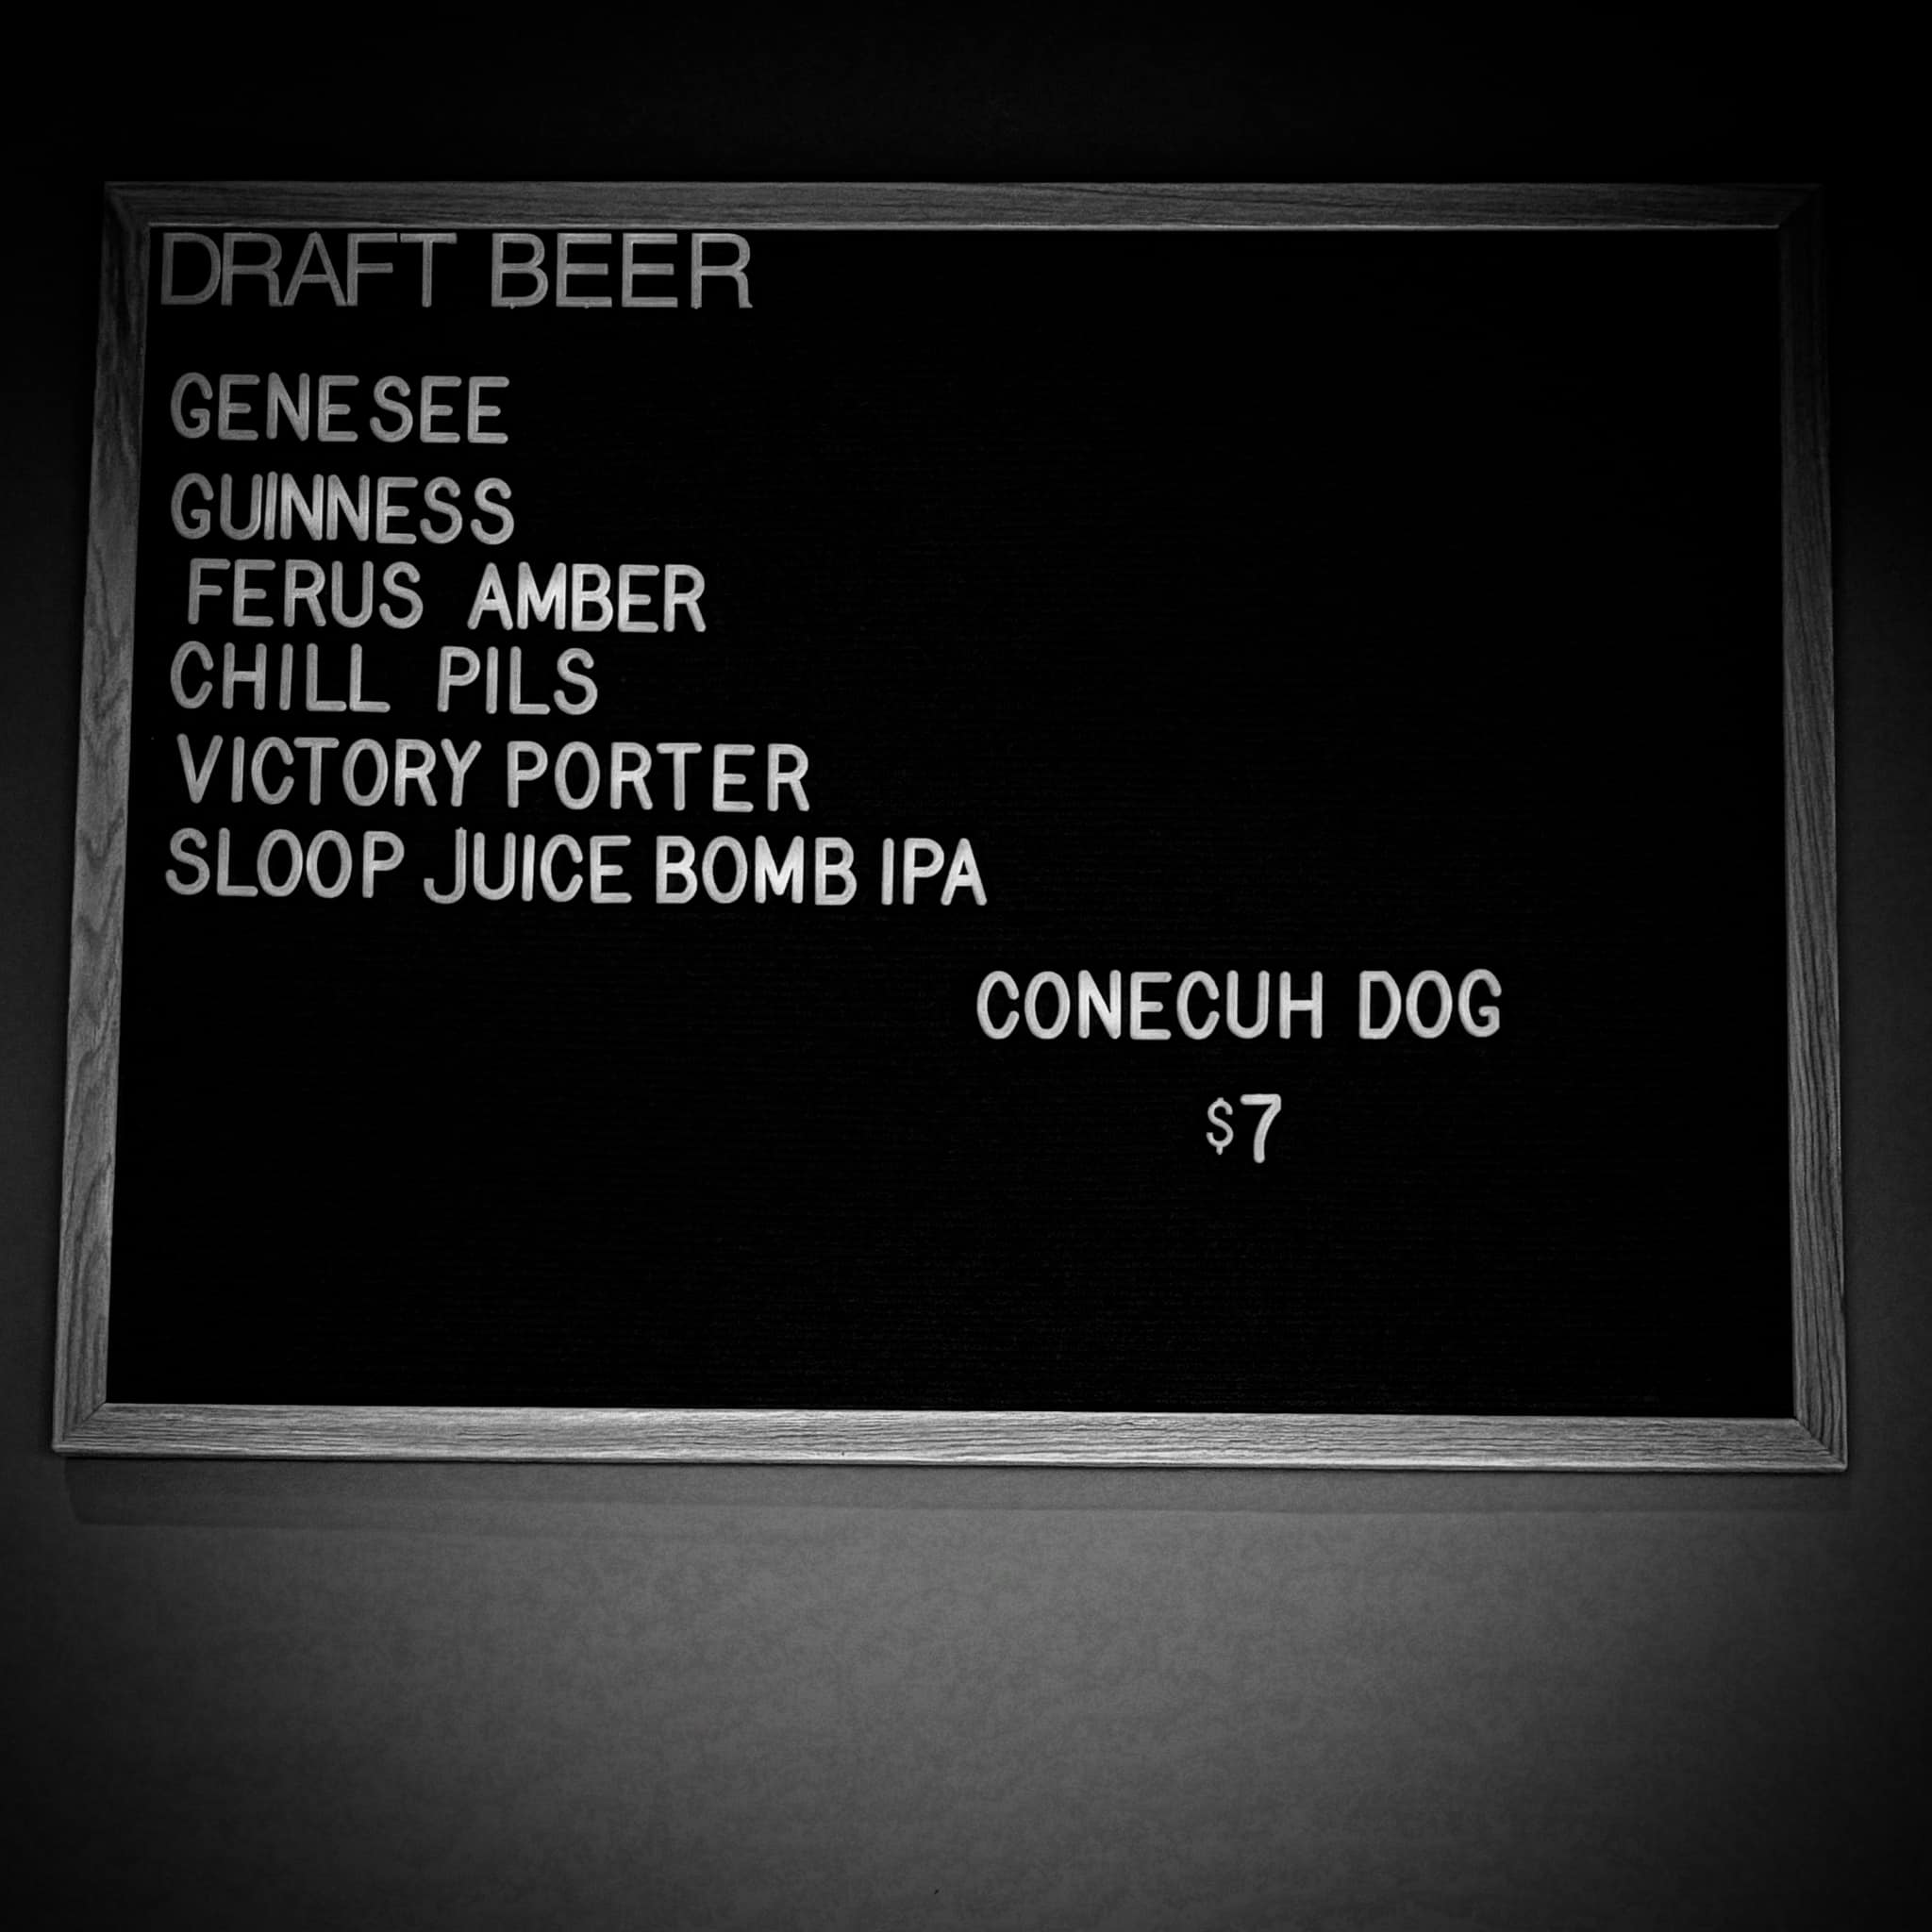 DRAFT BEER
GENESEE
GUINNESS
FERUS AMBER
CHILL PILS
VICTORY PORTER
SLOOP JUICE BOMB IPA
CONECUH DOG
$7